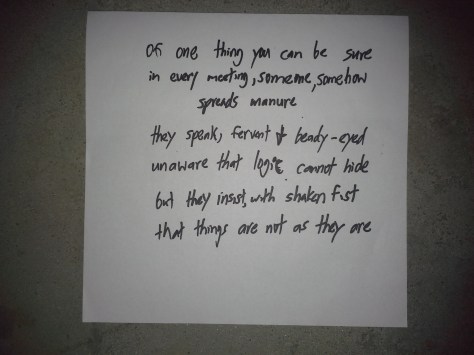 of one thing you can be sure
in every meeting, someone, somehow
spreads manure
they speak, fervant & beady-eyed
unaware that logic cannot hide
but they insist, with shaken fist
that things are not as they are